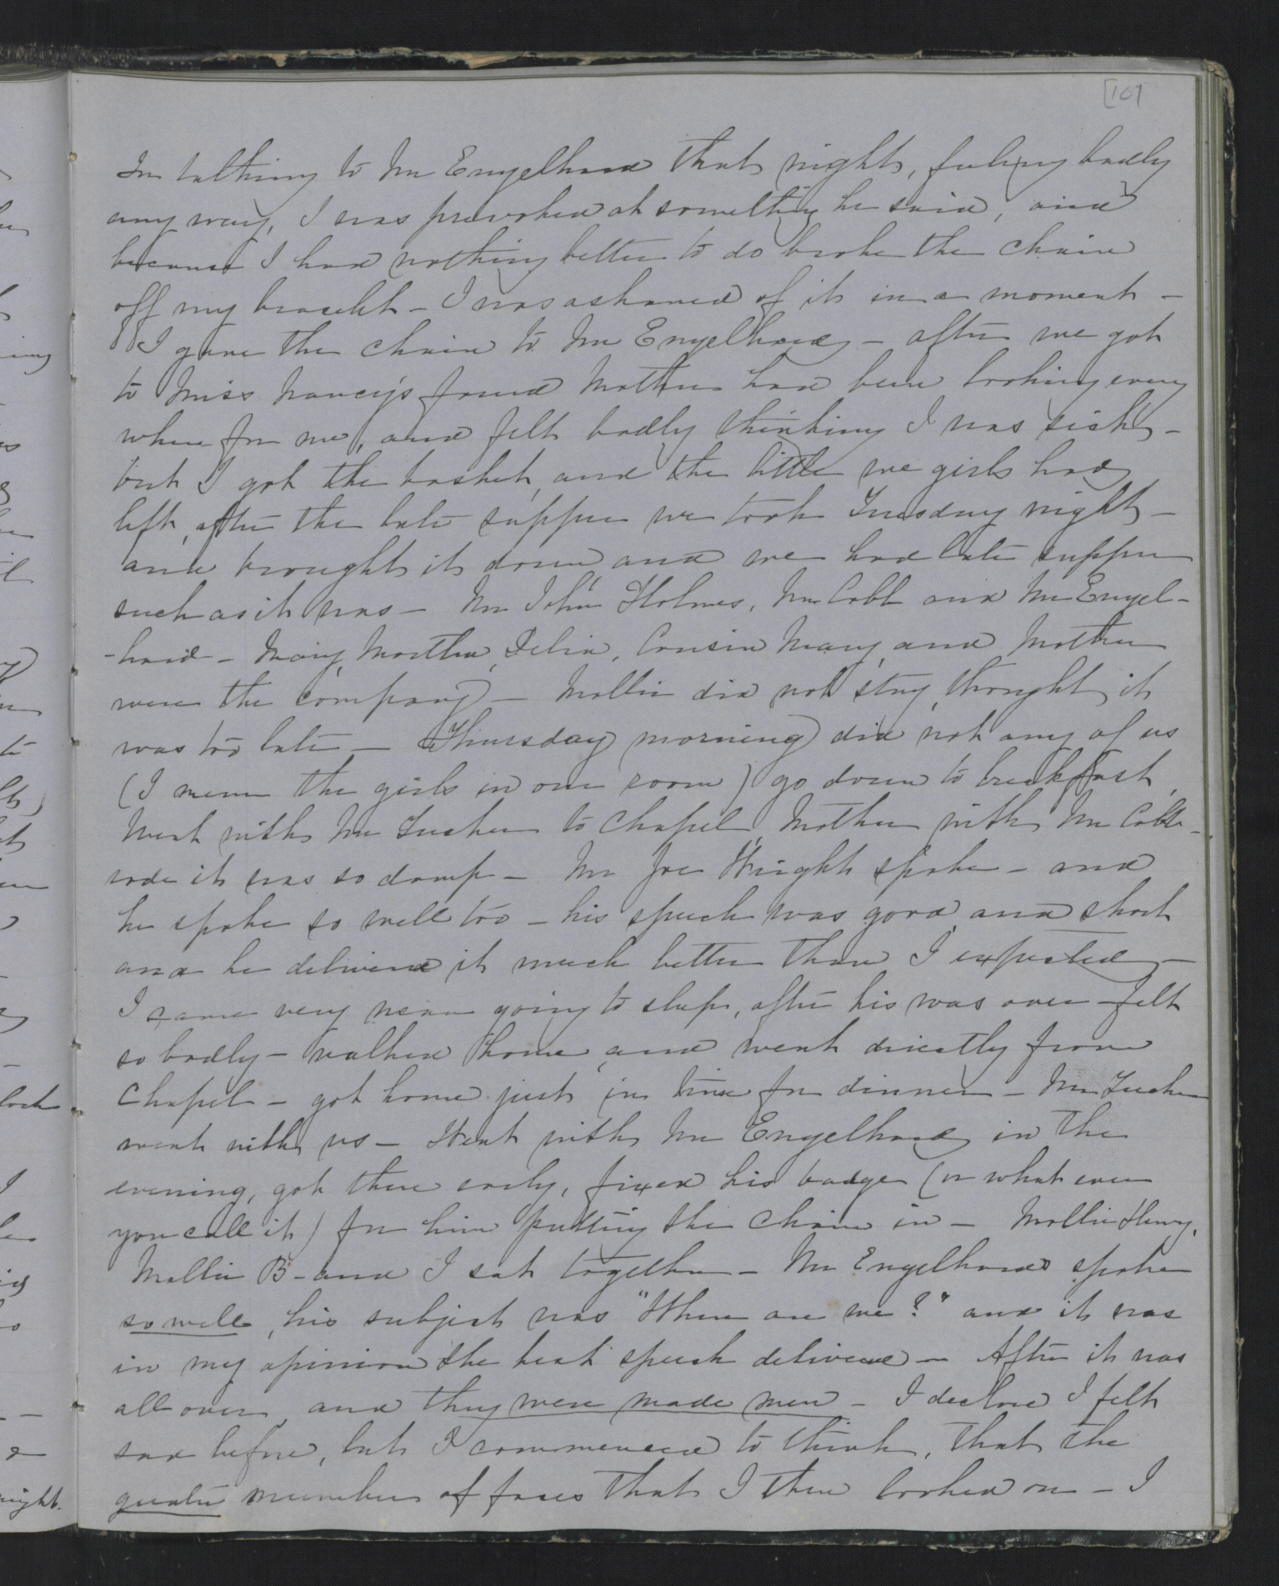 [107
In talking to Mr Engelhard that night, feeling badly
any way, I was provoked at something he said, and
because I had nothing better to do broke the chain
off my bracelet - I was ashamed of it in a moment -
I gave the chain to Mr Engelhard - after we got
to Miss Nancy's found Mother had been looking every
where for me, and felt badly thinking I was sick -
but I got the basket, and the little we girls had
left, after the late supper we took Tuesday night -
and brought it down and we had late supper
such as it was - Mr John Holmes, Mr Cobb and Mr Engel-
-hard - Mary, Martha, Delia, Cousin Mary, and Mother
were the company - Mollie did not stay, thought it
was too late - Thursday morning did not any of us
(I mean the girls in our room) go down to breakfast,
Went with Mr Tucker to Chapel, Mother with Mr Cobb -
rode it was so damp - Mr Joe Wright spoke - and
he spoke so well too - his speech was good and short
and he delivered it much better than I expected -
I came very near going to sleep, after his was over - felt
so badly - walked home and went directly from
Chapel - got home just in time for dinner - Mr Tucker
went with us - Went with Mr Engelhard in the
evening, got there early, fixed his badge (or what ever
you call it) for him putting the chain in - Mollie Henry,
Mollie B - and I sat together - Mr Engelhard spoke
so well, his subject was "Where are we?" and it was
in my opinion the best speech delivered - After it was
all over, and they were made men - I declare I felt
sad before, but I commenced to think, that the
greater number of faces that I then looked on - I